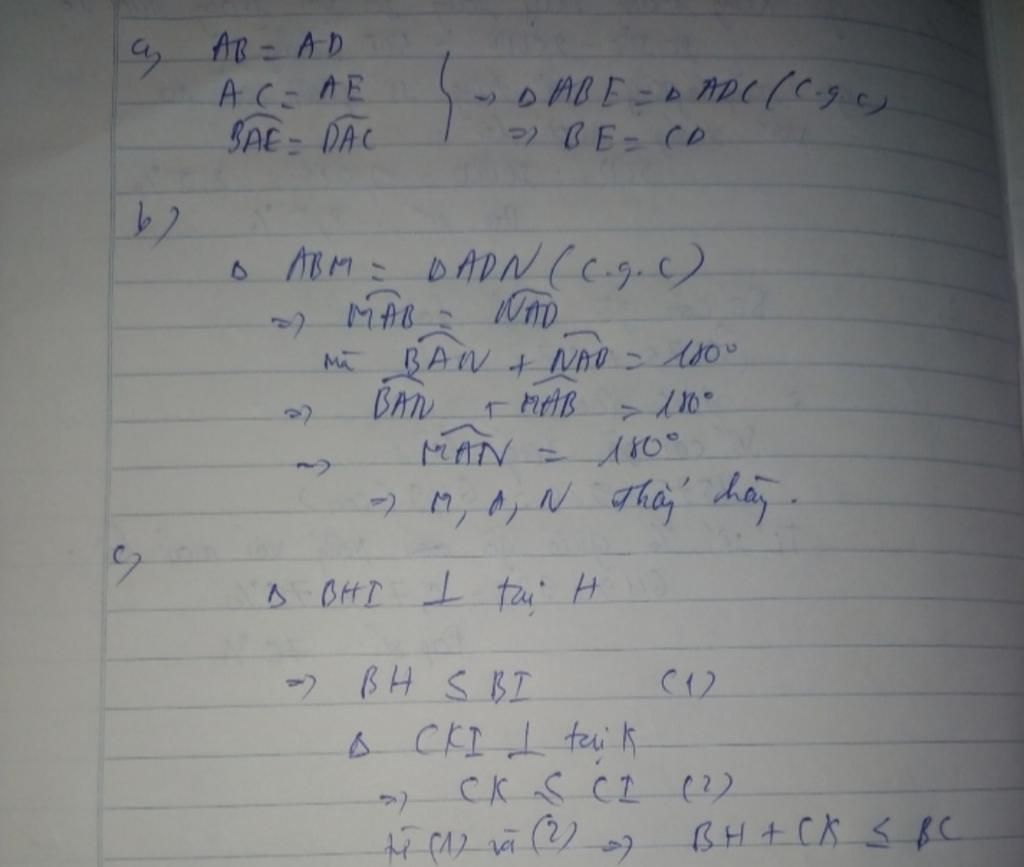 a, AB = AD
AC = AE
BAE = DAC } => Δ ABE = Δ ADC (c.g.c)
=> BE = CD
b)
Δ ABM = Δ ADN (c.g.c)
=> MAB = NAD
mà BAN + NAD = 180°
=> BAN + MAB = 180°
=> MAN = 180°
=> M, A, N thẳng hàng.
c,
Δ BHI ⊥ tại H
=> BH ≤ BI (1)
Δ CKI ⊥ tại K
=> CK ≤ CI (2)
từ (1) và (2) => BH + CK ≤ BC